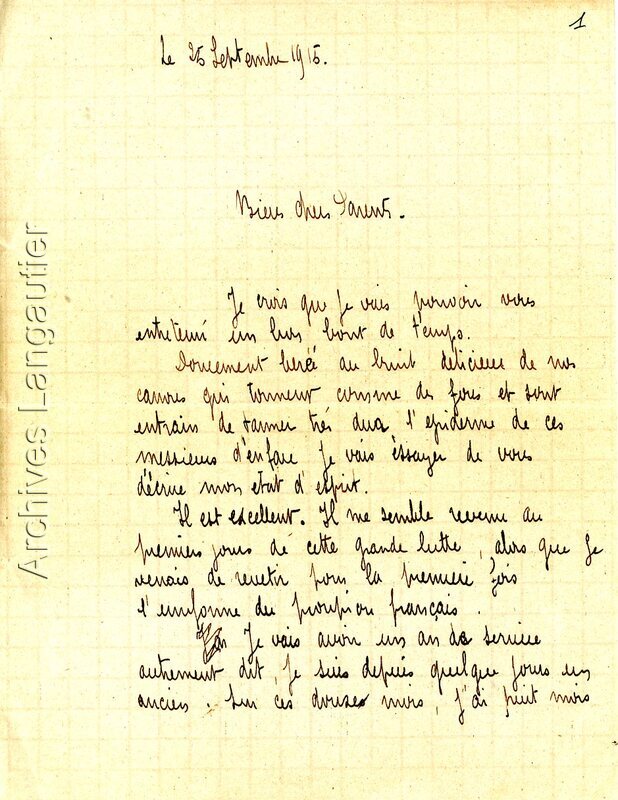 1
Le 25 Septembre 1915.
Biens chers Parents.
Je crois que je vais pouvoir vous
entretenir un bon bout de temps.
Doucement bercé au bruit délicieux de nos
canons qui tonnent comme des fous et sont
entrain de tanner très dur l'epiderme de ces
messieurs d'enface je vais éssayer de vous
décrire mon etat d'esprit.
Il est excellent. Il me semble revenu au
premiers jours de cette grande lutte, alors que je
venais de revetir pour la première fois
l'uniforme du pioupiou français.
Je vais avoir un an de service
autrement dit, je suis depuis quelque jours un
ancien. Sur ces douzes mois, j'ai huit mois
Archives Langautier